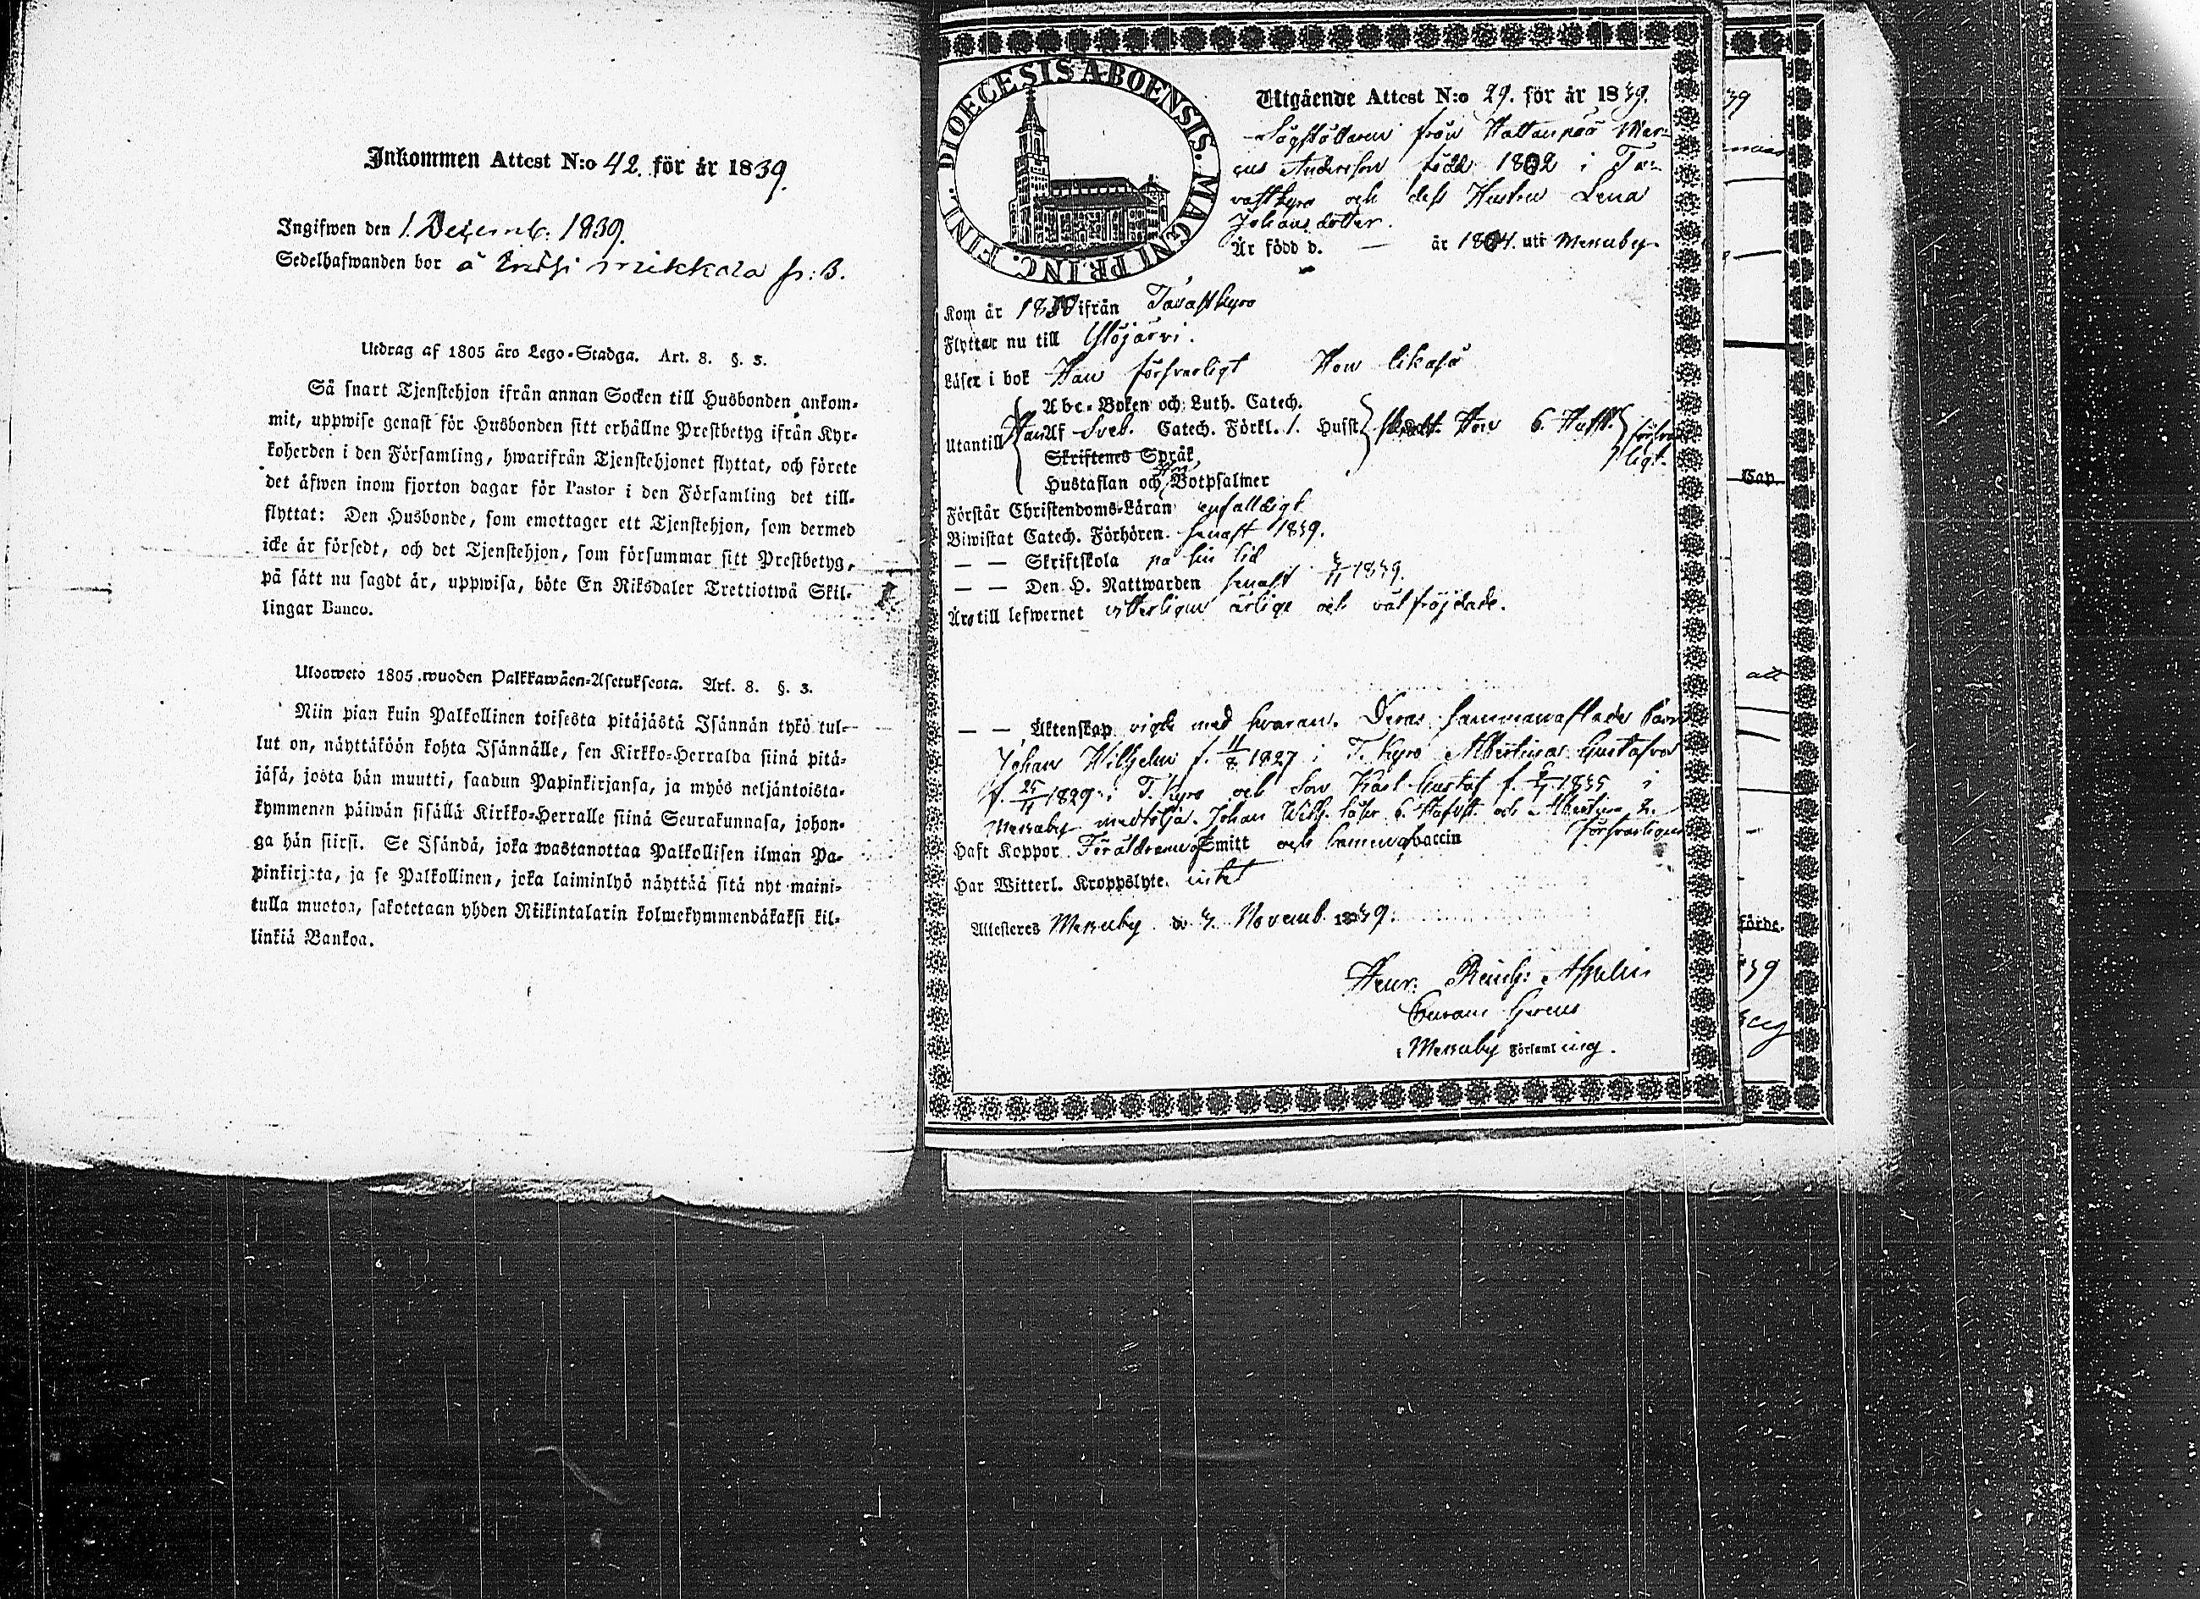 Inkommen Attest N:o 42. för år 1839.
Ingifwen den 1. Decemb: 1839.
Sedelhafwanden bor å mikkola
Utdrag af 1805 års Lego-Stadga. Art. 8. §. 3.
Så snart Tjenstehjon ifrån annan Socken till Husbonden ankom-
mit, uppwise genast för Husbonden sitt erhållne Prestbetyg ifrån Kyr-
koherden i den Församling, hwarifrån Tjenstehjonet flyttat, och förete
det äfwen inom fjorton dagar för Pastor i den Församling det till-
flyttat: Den Husbonde, som emottager ett Tjenstehjon, som dermed
icke är försedt, och det Tjenstehjon, som försummar sitt Prestbetyg,
på sätt nu sagdt är, uppwisa, böte En Riksdaler Trettiotwå Skil-
lingar Banco.
Ulosweto 1805 wuoden Palkkawäen-Asetuksesta. Art. 8. §. 3.
Niin pian kuin Palkollinen toisesta pitäjästä Isännän tykö tul-
lut on, näyttäköön kohta Isännälle, sen Kirkko-Herralda siinä pitä-
jäsä, josta hän muutti, saadun Papinkirjansa, ja myös neljäntoista-
kymmenen päiwän sisällä Kirkko-Herralle siinä Seurakunnasa, johon-
ga hän siirsi. Se Isändä, joka wastanottaa Palkollisen ilman Pa-
pinkirjata, ja se Palkollinen, joka laiminlyö näyttää sitä nyt maini-
tulla muotoa, sakotetaan yhden Riikintalarin kolmekymmendäkaksi kil-
linkiä Bankoa.
DIOECESIS ABOENSIS. MAGNI PRINC. FINL.
Utgående Attest N:o 29. för år 1839.
från Hattanpää Mar-
cus Andersson född 1802 i Ta-
vastkyro och dess Hustru Lena
Johansdotter.
Är född d. — år 1804. uti Messuby
Kom år 18 ifrån Tavastkyro
Flyttar nu till Ylöjärvi.
Läser i bok Han försvarligt Hon likaså
Abc-Boken och Luth. Catech.
Utantill Han Af Sveb. Catech. Förkl. 1. Hufst. Hon 6. Hufst. försvar
ligt.
Skriftenes Språk
Hustaflan och Botpsalmer
Förstår Christendoms-Läran enfaldigt
Biwistat Catech. Förhören senast 1839.
— — Skriftskola på sin tid
— — Den H. Nattwarden senast 3/11 1839.
Äro till lefwernet ytterligare ärlige och välfrejdade.
— — Äktenskap vigde med hvaran. Deras sammanaflade barn
Johan Wilhelm f. 11/8 1827 i T. Kyro Albertina Gustafva
f. 25/11 1829 i T. Kyro och Son Karl Gustaf f. 1835 i
Messuby medfölja. Johan Wilh. läser 6. Hufvst. och Albertina 2.
försvarligen
Haft Koppor Föräldrarne Smitt och barnen vaccin
Har Witterl. Kroppslyte. intet
Attesteres Messuby d. 3. Novemb. 1839.
Henr: Reinh: Aspelin
Curam Gerens
i Messuby Församling.
39
Cap.
att
förde.
39